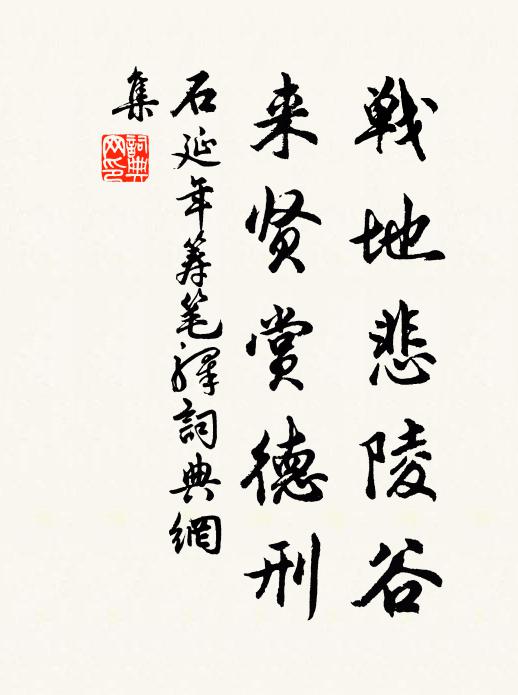 戦地悲陵谷
来贤赏德刑
石延年筹笔驿詞典網
集
詞典網印